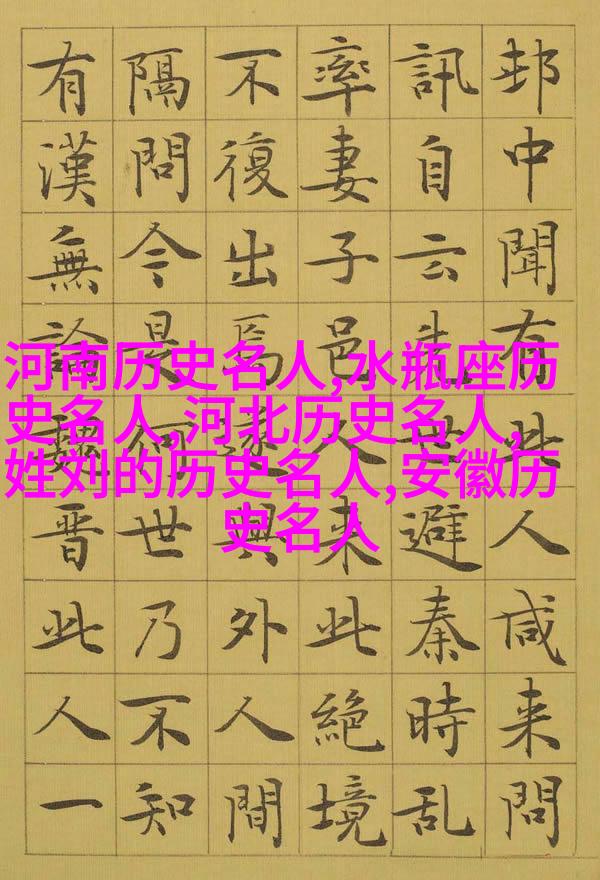 河南历史名人,水瓶座历
史名人,河北历史名人,
姓刘的历史名人,安徽历
史名人
邨中聞有此人咸来問
訊自云先世避秦時乱
率妻子邑人来此絶境
不復出焉遂與外人間
隔問今是何世乃不知
有漢無論魏晋此人一